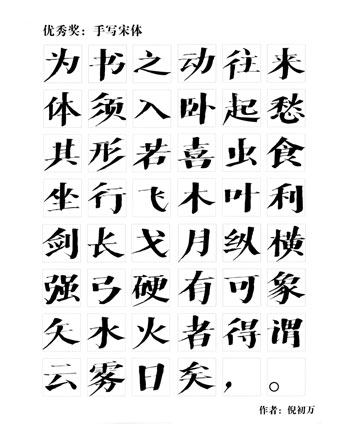 优秀奖：手写宋体
为书之动往来
体须入卧起愁
其形若喜虫食
坐行飞木叶利
剑长戈月纵横
强弓硬有可象
矢水火者得谓
云雾日矣，。
作者：倪初万